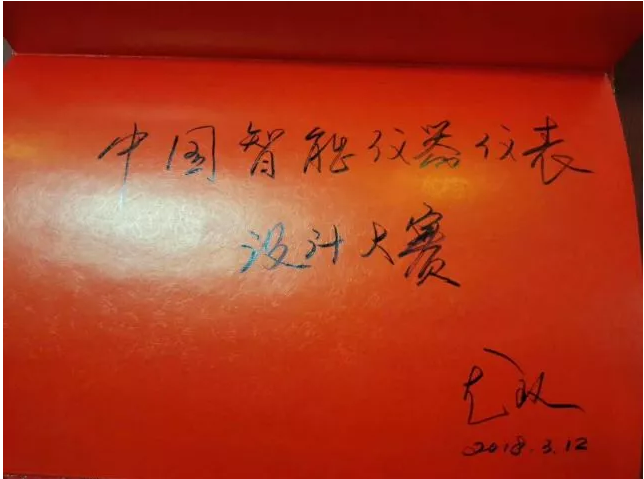 中国智能仪器仪表
设计大赛
2018.3.12